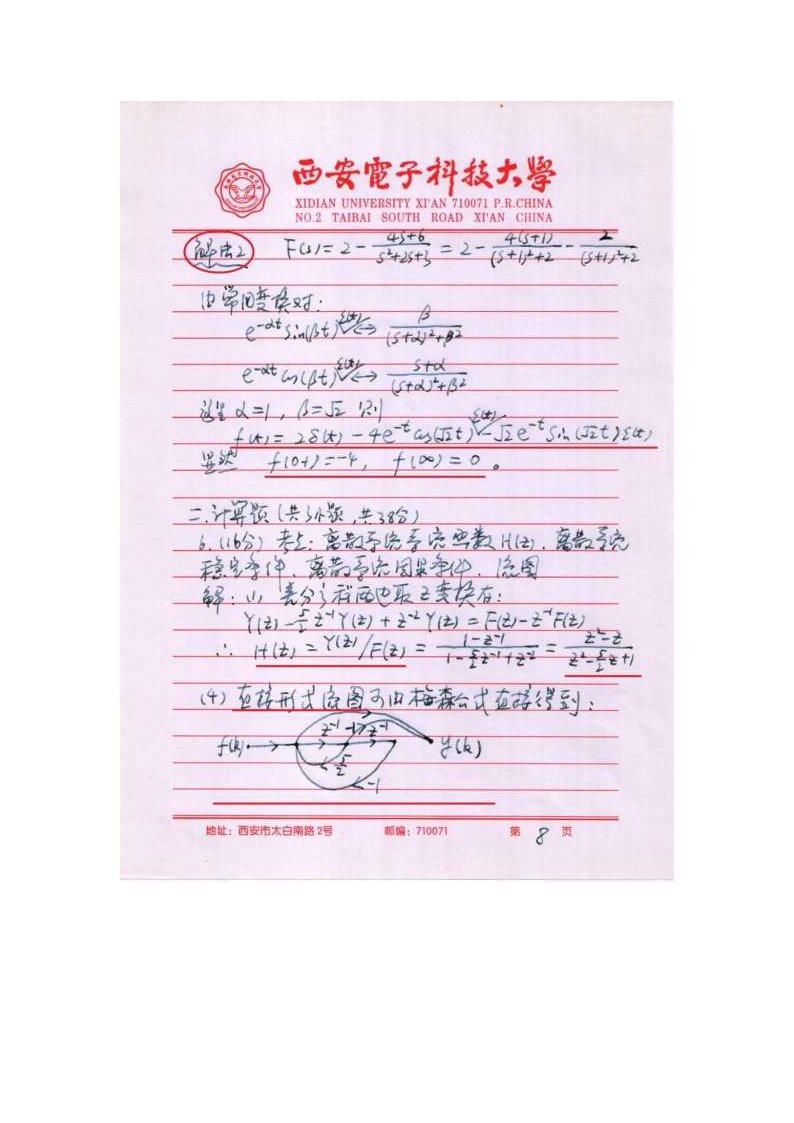 西安電子科技大學
XIDIAN UNIVERSITY XI'AN 710071 P.R.CHINA
NO.2 TAIBAI SOUTH ROAD XI'AN CHINA
解法2 F(s) = 2 - (4s+6)/(s²+2s+3) = 2 - 4(s+1)/((s+1)²+2) - 2/((s+1)²+2)
由常用变换对:
e^{-αt} sin(βt) ε(t) ↔ β/((s+α)²+β²)
e^{-αt} cos(βt) ε(t) ↔ (s+α)/((s+α)²+β²)
这里 α=1, β=√2 则
f(t) = 2δ(t) - 4e^{-t} cos(√2t) ε(t) - √2 e^{-t} sin(√2t) ε(t)
显然 f(0+) = -4, f(∞) = 0 。
二.计算题 (共3小题,共38分)
6. (16分) 考点: 离散系统系统函数 H(z)、离散系统
稳定条件、离散系统因果条件、流图
解: (1) 差分方程两边取Z变换有:
Y(z) - 5/2 z⁻¹Y(z) + z⁻²Y(z) = F(z) - z⁻¹F(z)
∴ H(z) = Y(z)/F(z) = (1-z⁻¹)/(1-5/2 z⁻¹+z⁻²) = (z²-z)/(z²-5/2 z+1)
(4) 直接形式流图可由梅森公式直接得到:
f(k) z⁻¹ -1 z⁻¹ y(k)
5/2
-1
地址：西安市太白南路2号 邮编：710071 第 8 页